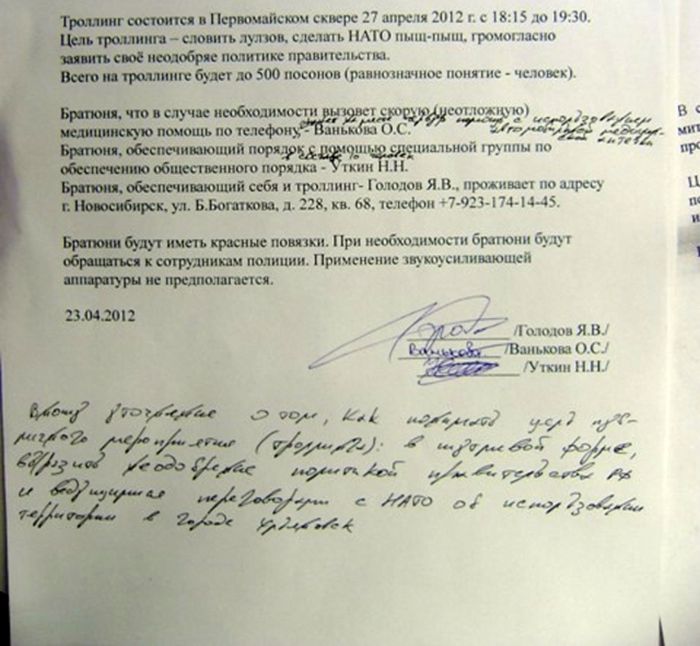 Троллинг состоится в Первомайском сквере 27 апреля 2012 г. с 18:15 до 19:30.
Цель троллинга – словить лулзов, сделать НАТО пыщ-пыщ, громогласно
заявить своё неодобряе политике правительства.
Всего на троллинге будет до 500 посонов (равнозначное понятие - человек).
Братюня, что в случае необходимости вызовет скорую (неотложную)
с использованием
медицинскую помощь по телефону, - Ванькова О.С.
Братюня, обеспечивающий порядок с помощью специальной группы по
в составе 10 человек
обеспечению общественного порядка - Уткин Н.Н.
Братюня, обеспечивающий себя и троллинг- Голодов Я.В., проживает по адресу
г. Новосибирск, ул. Б.Богаткова, д. 228, кв. 68, телефон +7-923-174-14-45.
Братюни будут иметь красные повязки. При необходимости братюни будут
обращаться к сотрудникам полиции. Применение звукоусиливающей
аппаратуры не предполагается.
23.04.2012
/Голодов Я.В./
Ванькова /Ванькова О.С./
/Уткин Н.Н./
Вношу уточнение о том, как понимать цель пуб-
личного мероприятия (троллинга): в шутливой форме,
выразить неодобрение политикой правительства РФ
и ведущимися переговорами с НАТО об использовании
территории в городе Ульяновск
В с
ми
про
Ц
по
и